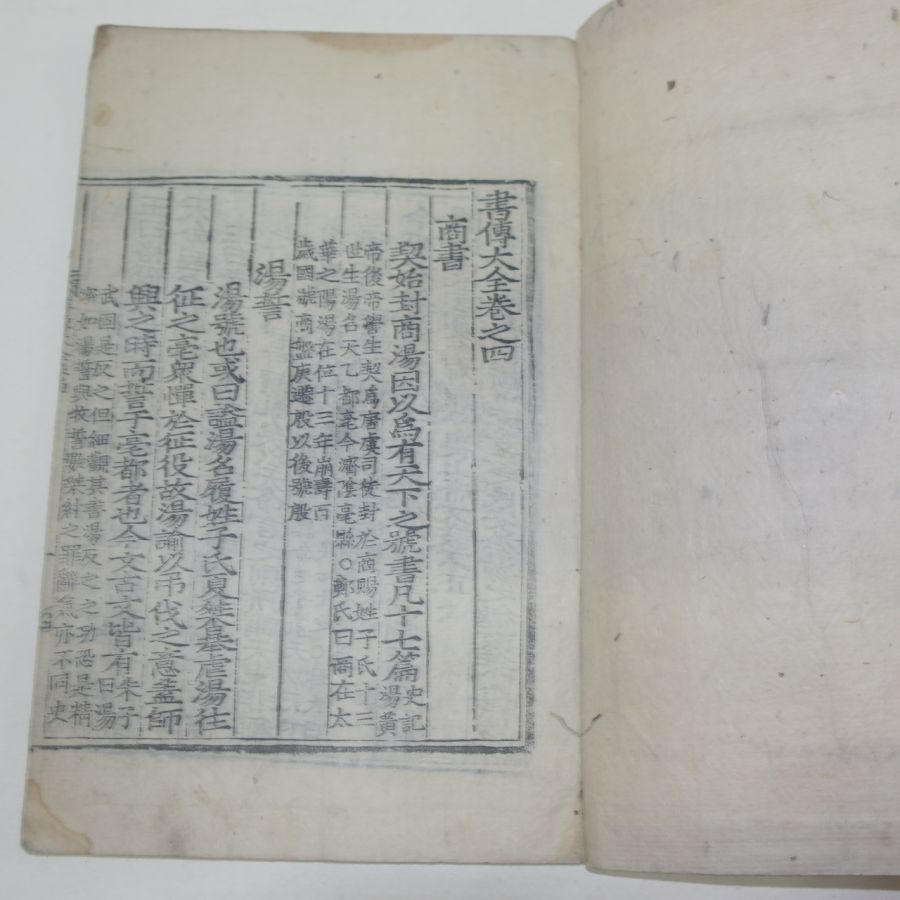 書傳大全卷之四
商書
契始封商湯因以爲有天下之號書凡十七篇
史記
湯黃
帝後帝嚳生契爲唐虞司徒封於商賜姓子氏十三
世生湯名天乙都亳今濟陰亳縣○鄭氏曰商在太
華之陽湯在位十三年崩壽百
歲國號商盤庚遷殷以後號殷
湯誓
湯號也或曰謚湯名履姓子氏夏桀暴虐湯往
征之亳衆憚於征役故湯諭以弔伐之意蓋師
興之時而誓于亳都者也今文古文皆有
朱子
曰湯
武固是反之但細觀其書湯反之之功恐是精
密如湯誓與牧誓數桀紂之罪辭氣亦不同史